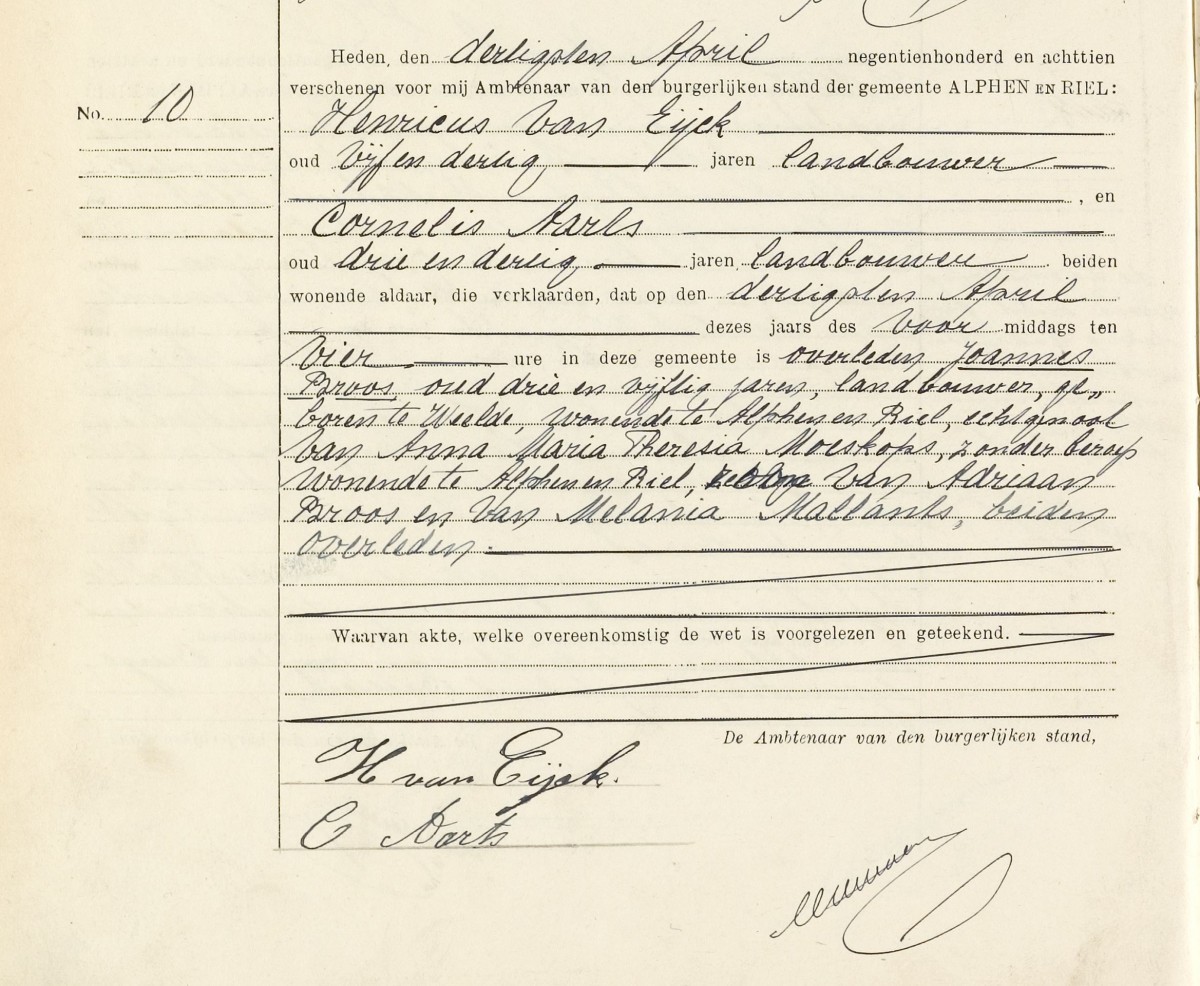 Heden, den dertigsten April negentienhonderd en achttien
verschenen voor mij Ambtenaar van den burgerlijken stand der gemeente ALPHEN EN RIEL:
No. 10
Henricus van Eijck
oud vijf en dertig jaren landbouwer
, en
Cornelis Aarts
oud drie en dertig jaren landbouwer beiden
wonende aldaar, die verklaarden, dat op den dertigsten April
dezes jaars des voor middags ten
vier ure in deze gemeente is overleden Joannes
Broos, oud drie en vijftig jaren, landbouwer, ge„
boren te Weelde, wonende te Alphen en Riel, echtgenoot
van Anna Maria Theresia Moeskops, zonder beroep
wonende te Alphen en Riel, van Adriaan
Broos en van Melania Mallants, beiden
overleden.
Waarvan akte, welke overeenkomstig de wet is voorgelezen en geteekend.
De Ambtenaar van den burgerlijken stand,
H van Eijck.
C Aarts